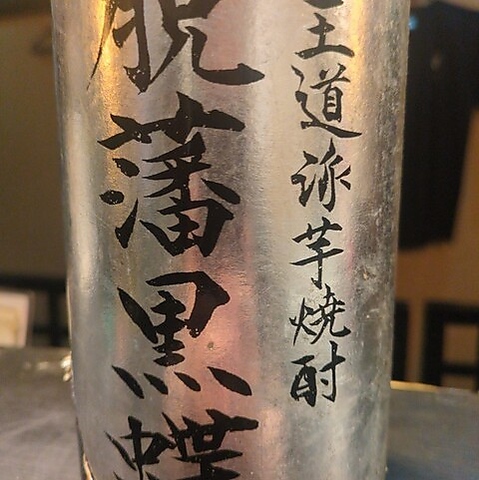 王道派芋焼酎
脱藩黒蝶